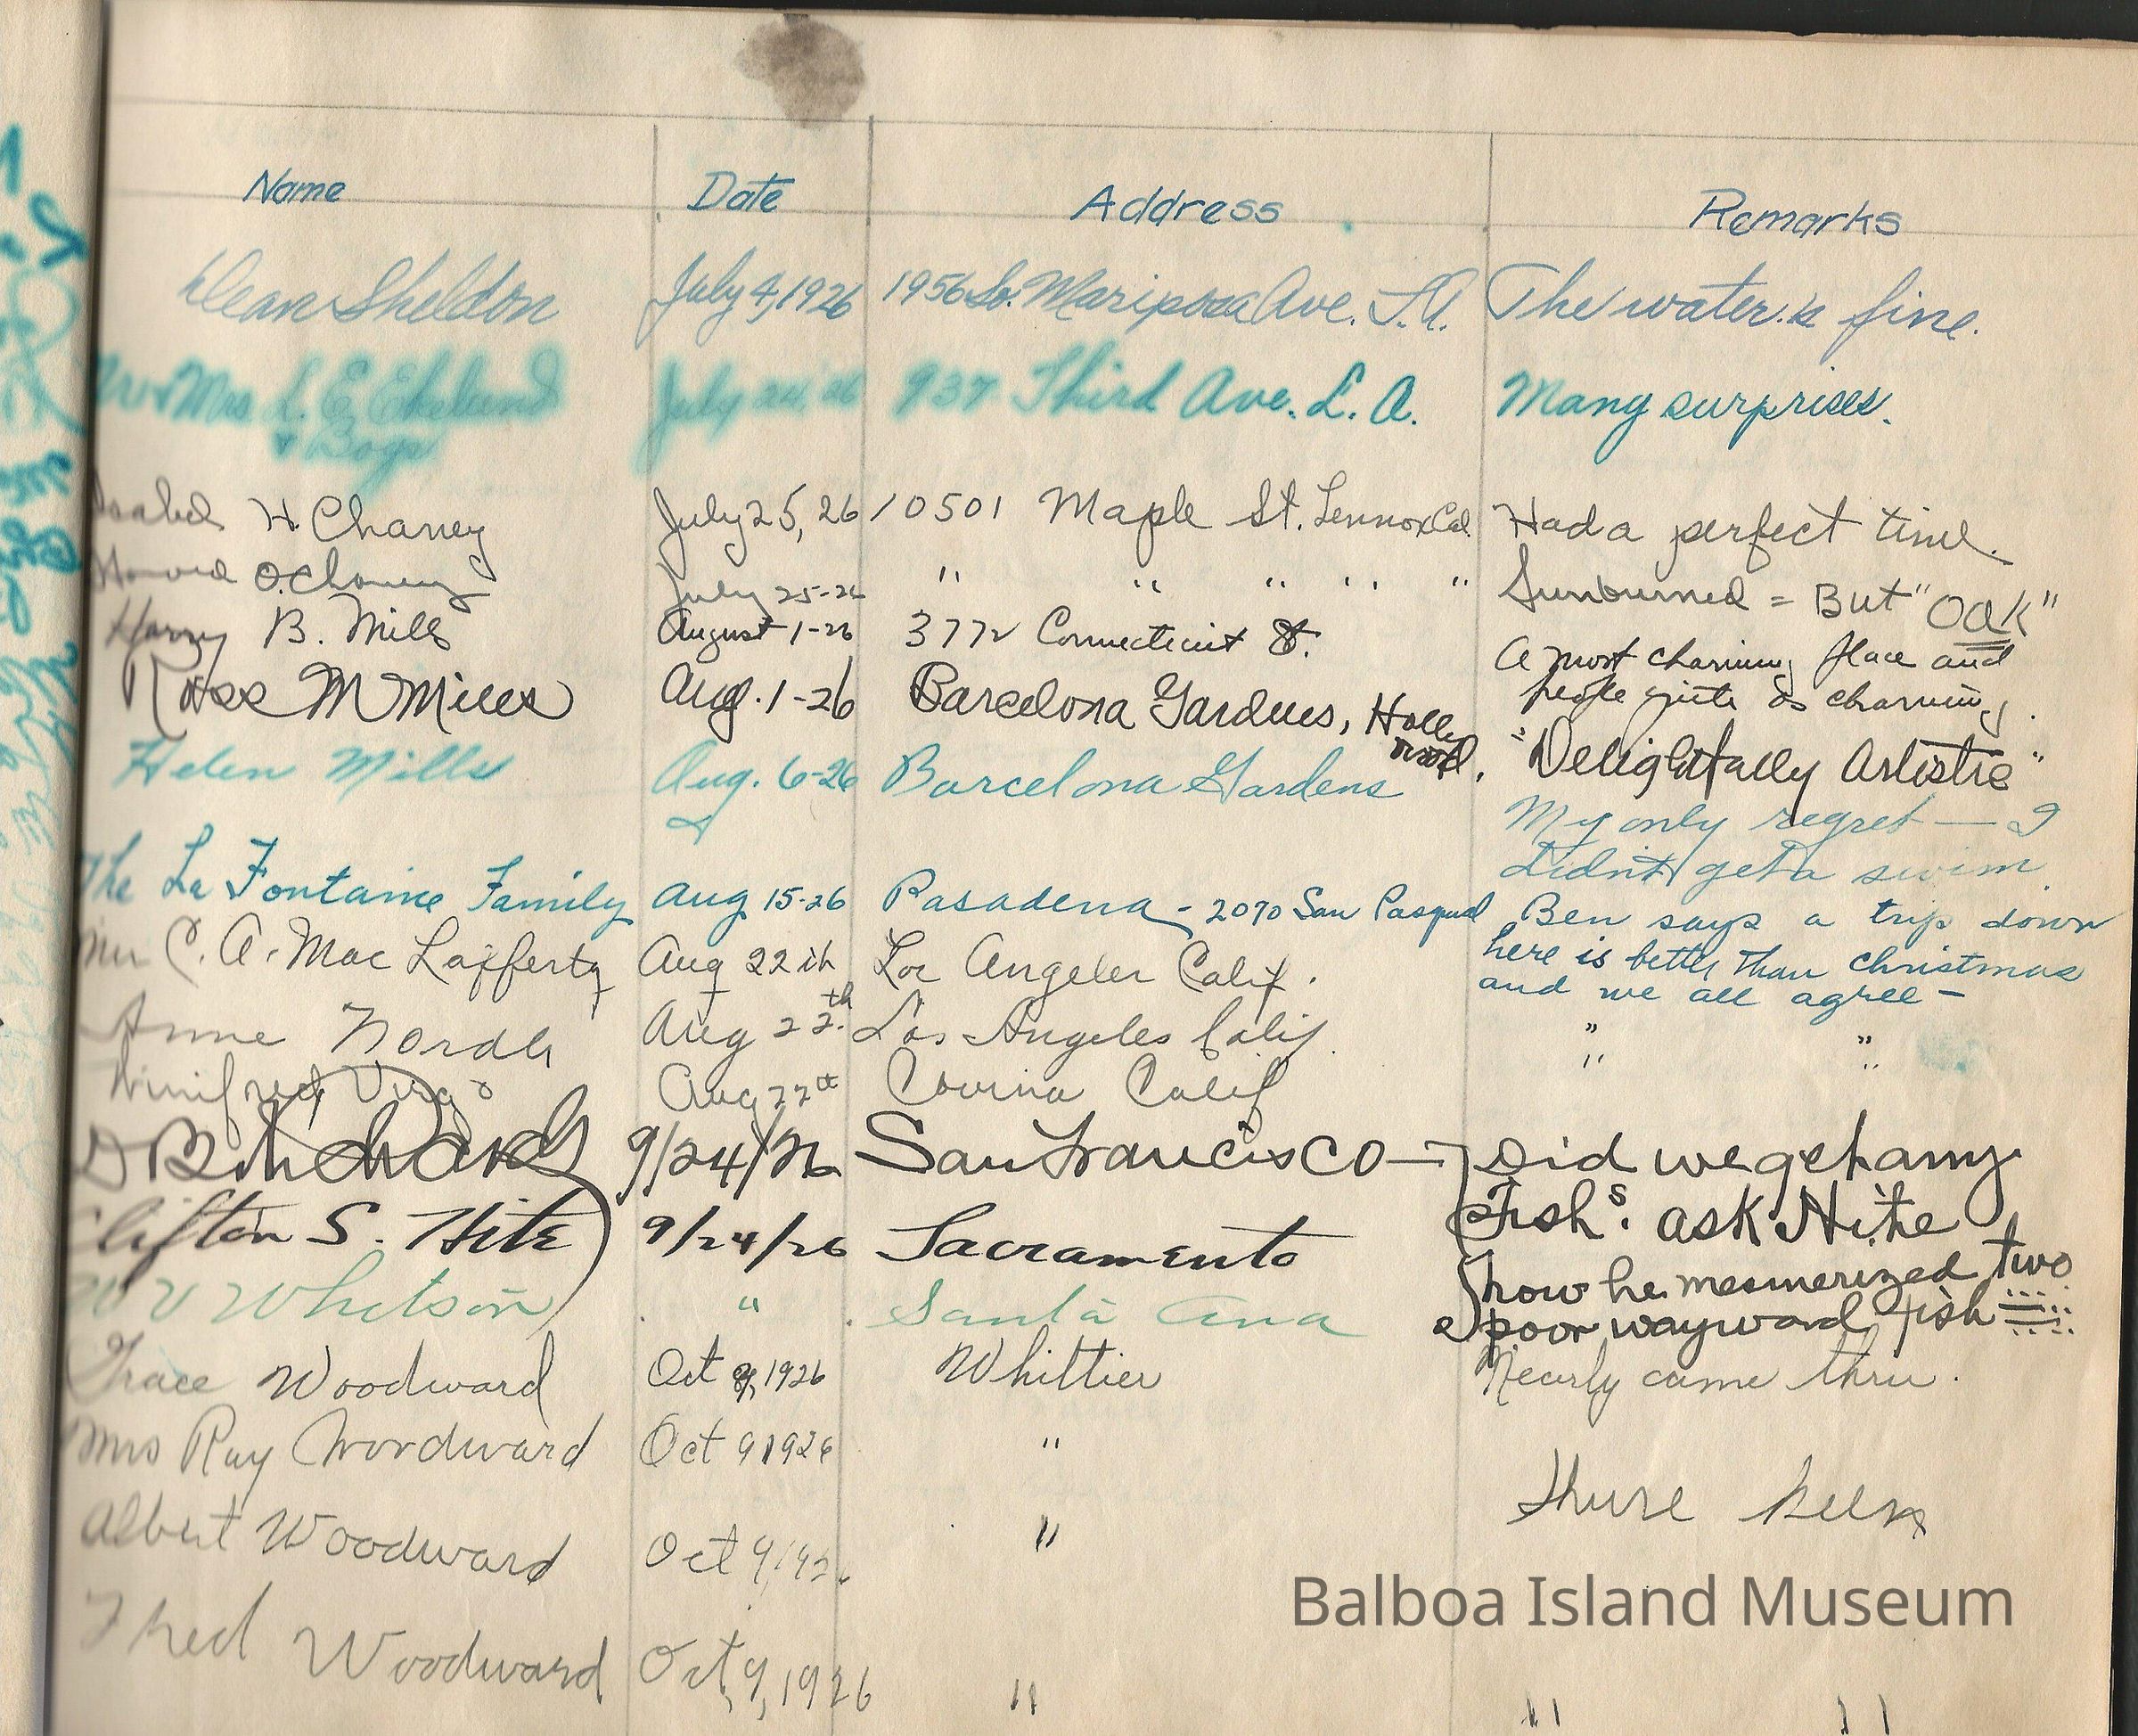 Name Date Address Remarks
Dean Sheldon July 4, 1926 1956 So. Mariposa Ave. L.A. The water is fine.
Mr & Mrs L. E. Ekelund July 24, 26 937 Third Ave. L. A. Many surprises.
& Boys
Isabel H Chaney July 25, 26 10501 Maple St. Lennox Cal. Had a perfect time.
O. Chaney July 25-26 " " " " " Sunburned = But "Oak"
Harry B. Mills August 1-26 3772 Connecticut St. A most charming place and
people quite as charming.
Rose M Mills Aug. 1-26 Barcelona Gardens, Holly
wood. "Delightfully Artistic"
Helen Mills Aug. 6-26 Barcelona Gardens My only regret — I
didn't get a swim.
The La Fontaine Family Aug 15-26 Pasadena - 2070 San Pasqual Ben says a trip down
here is better than Christmas
and we all agree -
C. A. Mac Lafferty Aug 22th Los Angeles Calif.
Anne Aug 22th Los Angeles Calif. " "
Winifred Aug 22th Covina Calif " "
9/24/26 San Francisco — Did we get any
Fishs. ask Hite
Clifton S. Hite 9/24/26 Sacramento how he mesmerized two
poor wayward fish
W V Whetson " Santa Ana
Grace Woodward Oct 9, 1926 Whittier Nearly came thru.
Mrs Ray Woodward Oct 9 1926 "
Albert Woodward Oct 9, 192 "
Fred Woodward Oct, 9, 1926 " " "
Balboa Island Museum